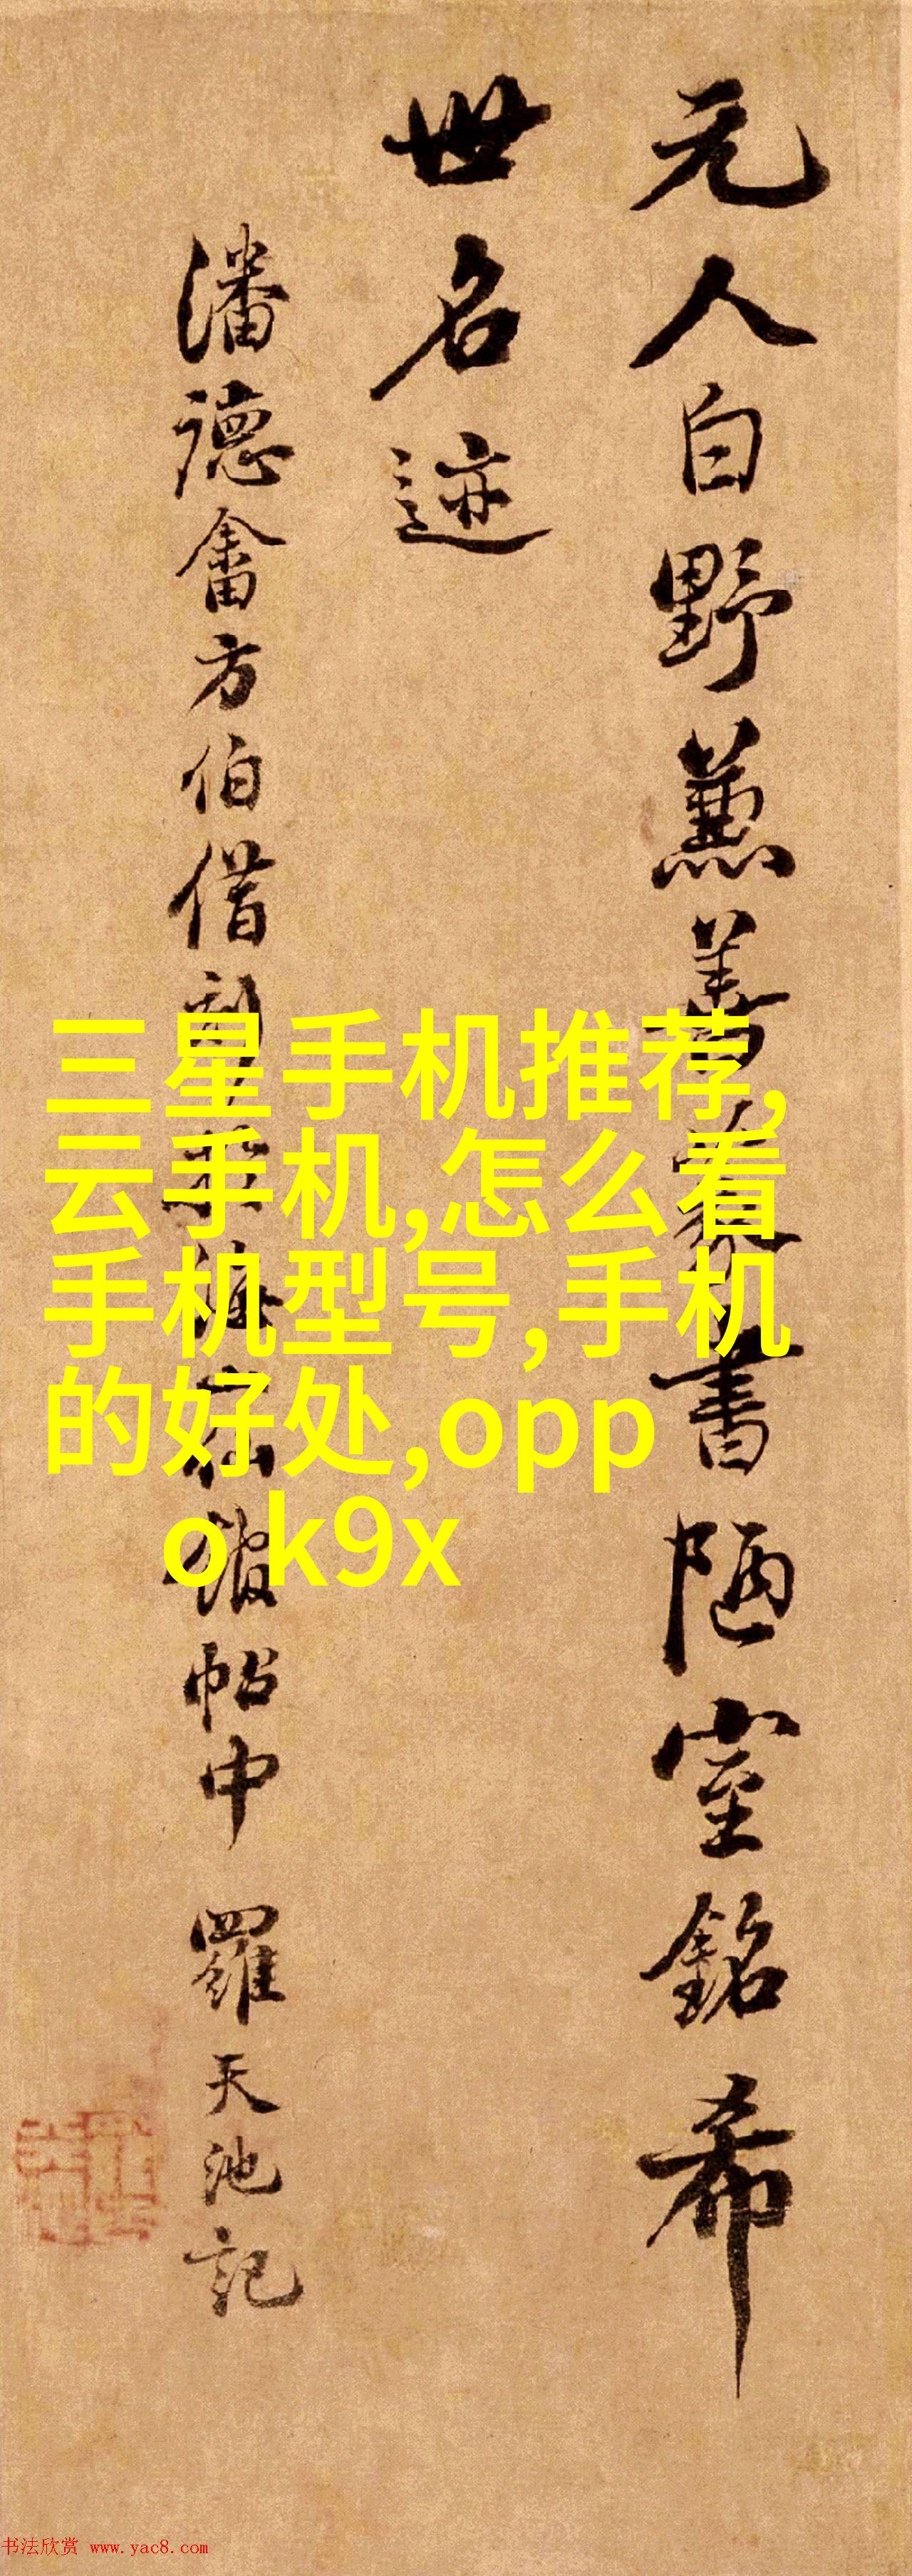 元人白野兼善篆書陋室銘希
世名迹
潘德畬方伯借刻
帖中 羅天池記
三星手机推荐,
云手机,怎么看
手机型号,手机
的好处,opp
o k9x
书法欣赏 www.yac8.com